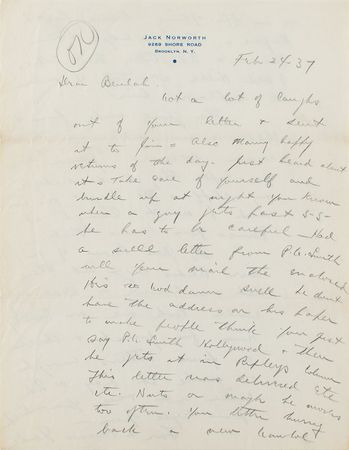 OK
JACK NORWORTH
9289 SHORE ROAD
BROOKLYN, N. Y.
Feb 24-37
Dear Beulah.
Got a lot of laughs
out of your letter & sent
it to Jim = Also Many happy
returns of the day - just heard about
it & Take care of yourself and
bundle up at night you know
when a guy gets past 55-
he has to be careful - Had
a swell letter from P.G. Smith
will you mail the enclosed
His so God damn swell he dont
have the address on his paper
to make people think you just
say P.G. Smith Hollywood & then
he gets it in Ripleys column
This letter was delivered etc
etc. Nuts or maybe he moves
too often. You better hurry
back a new